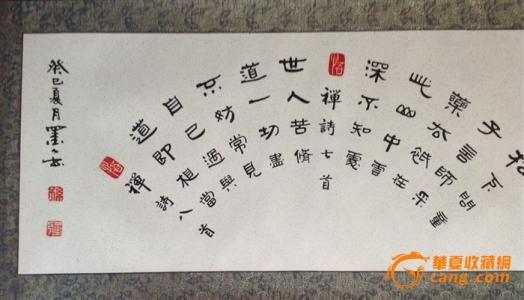 松下問童
子言師采
藥去祇在
此山中雲
深不知處
禪詩七首
世人若脩
道一切盡
不妨常見
自己過與
道即相當
禪詩八首
癸巳夏月墨
華夏收藏網
cang.com